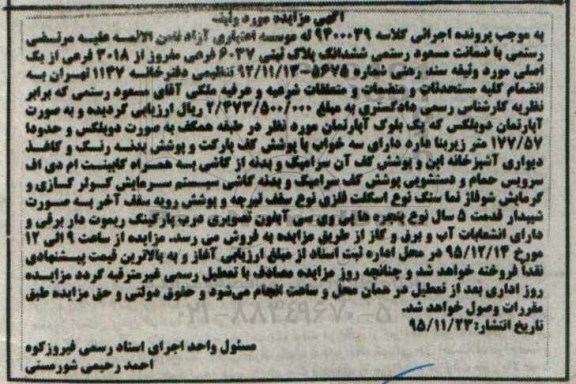 آگهی مزایده مورد وثیقه
به موجب پرونده اجرائی کلاسه ۹۴۰۰۰۳۹ له موسسه اعتباری آزاد ثامن الائمه علیه مرتضی
رستمی با ضمانت مسعود رستمی ششدانگ پلاک ثبتی ۶۰۳۷ فرعی مفروز از ۳۰۱۸ فرعی از یک
اصلی مورد وثیقه سند رهنی شماره ۵۶۷۵-۹۲/۱۱/۱۳ تنظیمی دفترخانه ۱۱۳۷ تهران به
انضمام کلیه مستحدثات و منضمات و متعلقات شرعیه و عرفیه ملکی آقای مسعود رستمی که برابر
نظریه کارشناس رسمی دادگستری به مبلغ ۲/۳۷۳/۵۰۰/۰۰۰ ریال ارزیابی گردیده و به صورت
آپارتمان دوبلکس که یک بلوک آپارتمان مورد نظر در طبقه همکف به صورت دوبلکس و حدودا
۱۷۷/۵۷ متر زیربنا دارد دارای سه خواب با پوشش کف پارکت و پوشش بدنه رنگ و کاغذ
دیواری آشپزخانه اپن و پوشش کف آن سرامیک و بدنه از کاشی به همراه کابینت ام دی اف
سرویس حمام و دستشویی پوشش کف سرامیک و بدنه کاشی سیستم سرمایش کولر گازی و
گرمایش شوفاژ نما سنگ نوع اسکلت فلزی نوع سقف تیرچه و پوشش رویه سقف آخر به صورت
شیبدار قدمت ۵ سال نوع پنجره ها پی وی سی آیفون تصویری درب پارکینگ ریموت دار برقی و
دارای انشعابات آب و برق و گاز از طریق مزایده به فروش می رسد. مزایده از ساعت ۹ الی ۱۲
مورخ ۹۵/۱۲/۱۴ در محل اداره ثبت اسناد از مبلغ ارزیابی آغاز و به بالاترین قیمت پیشنهادی
نقدا فروخته خواهد شد و چنانچه روز مزایده مصادف با تعطیل رسمی غیرمترقبه گردد مزایده
روز اداری بعد از تعطیل در همان محل و ساعت انجام می‌شود و حقوق دولتی و حق مزایده طبق
مقررات وصول خواهد شد.
تاریخ انتشار: ۹۵/۱۱/۲۳
مسئول واحد اجرای اسناد رسمی فیروزکوه
احمد رحیمی شورمستی